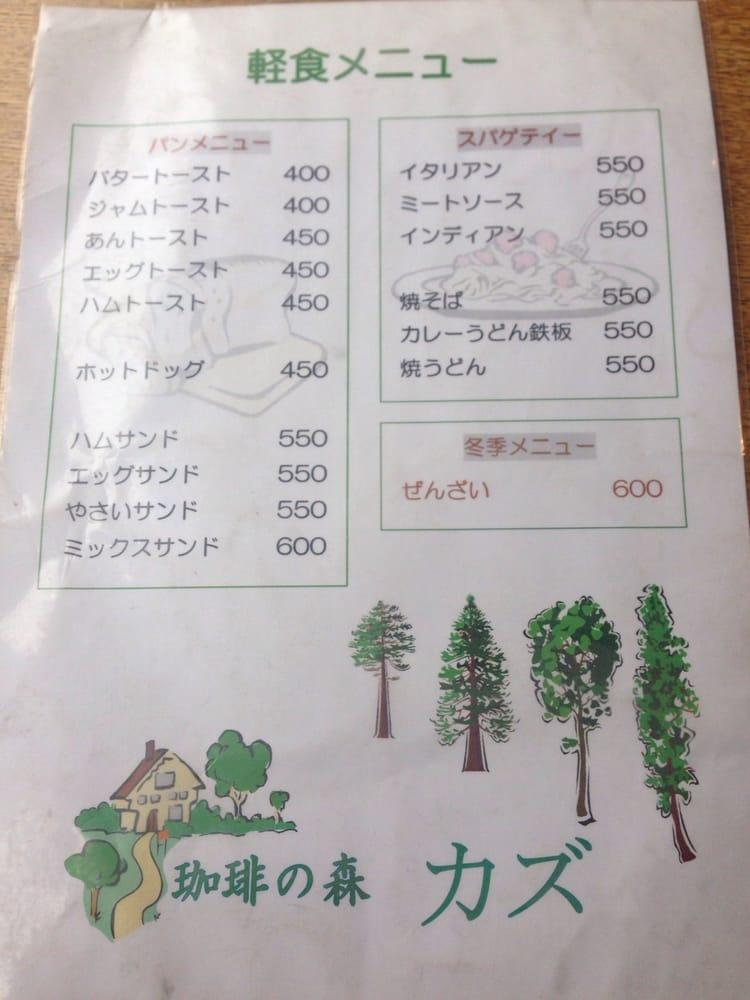 軽食メニュー
パンメニュー
バタートースト 400
ジャムトースト 400
あんトースト 450
エッグトースト 450
ハムトースト 450
ホットドッグ 450
ハムサンド 550
エッグサンド 550
やさいサンド 550
ミックスサンド 600
スパゲテイー
イタリアン 550
ミートソース 550
インディアン 550
焼そば 550
カレーうどん鉄板 550
焼うどん 550
冬季メニュー
ぜんざい 600
珈琲の森 カズ